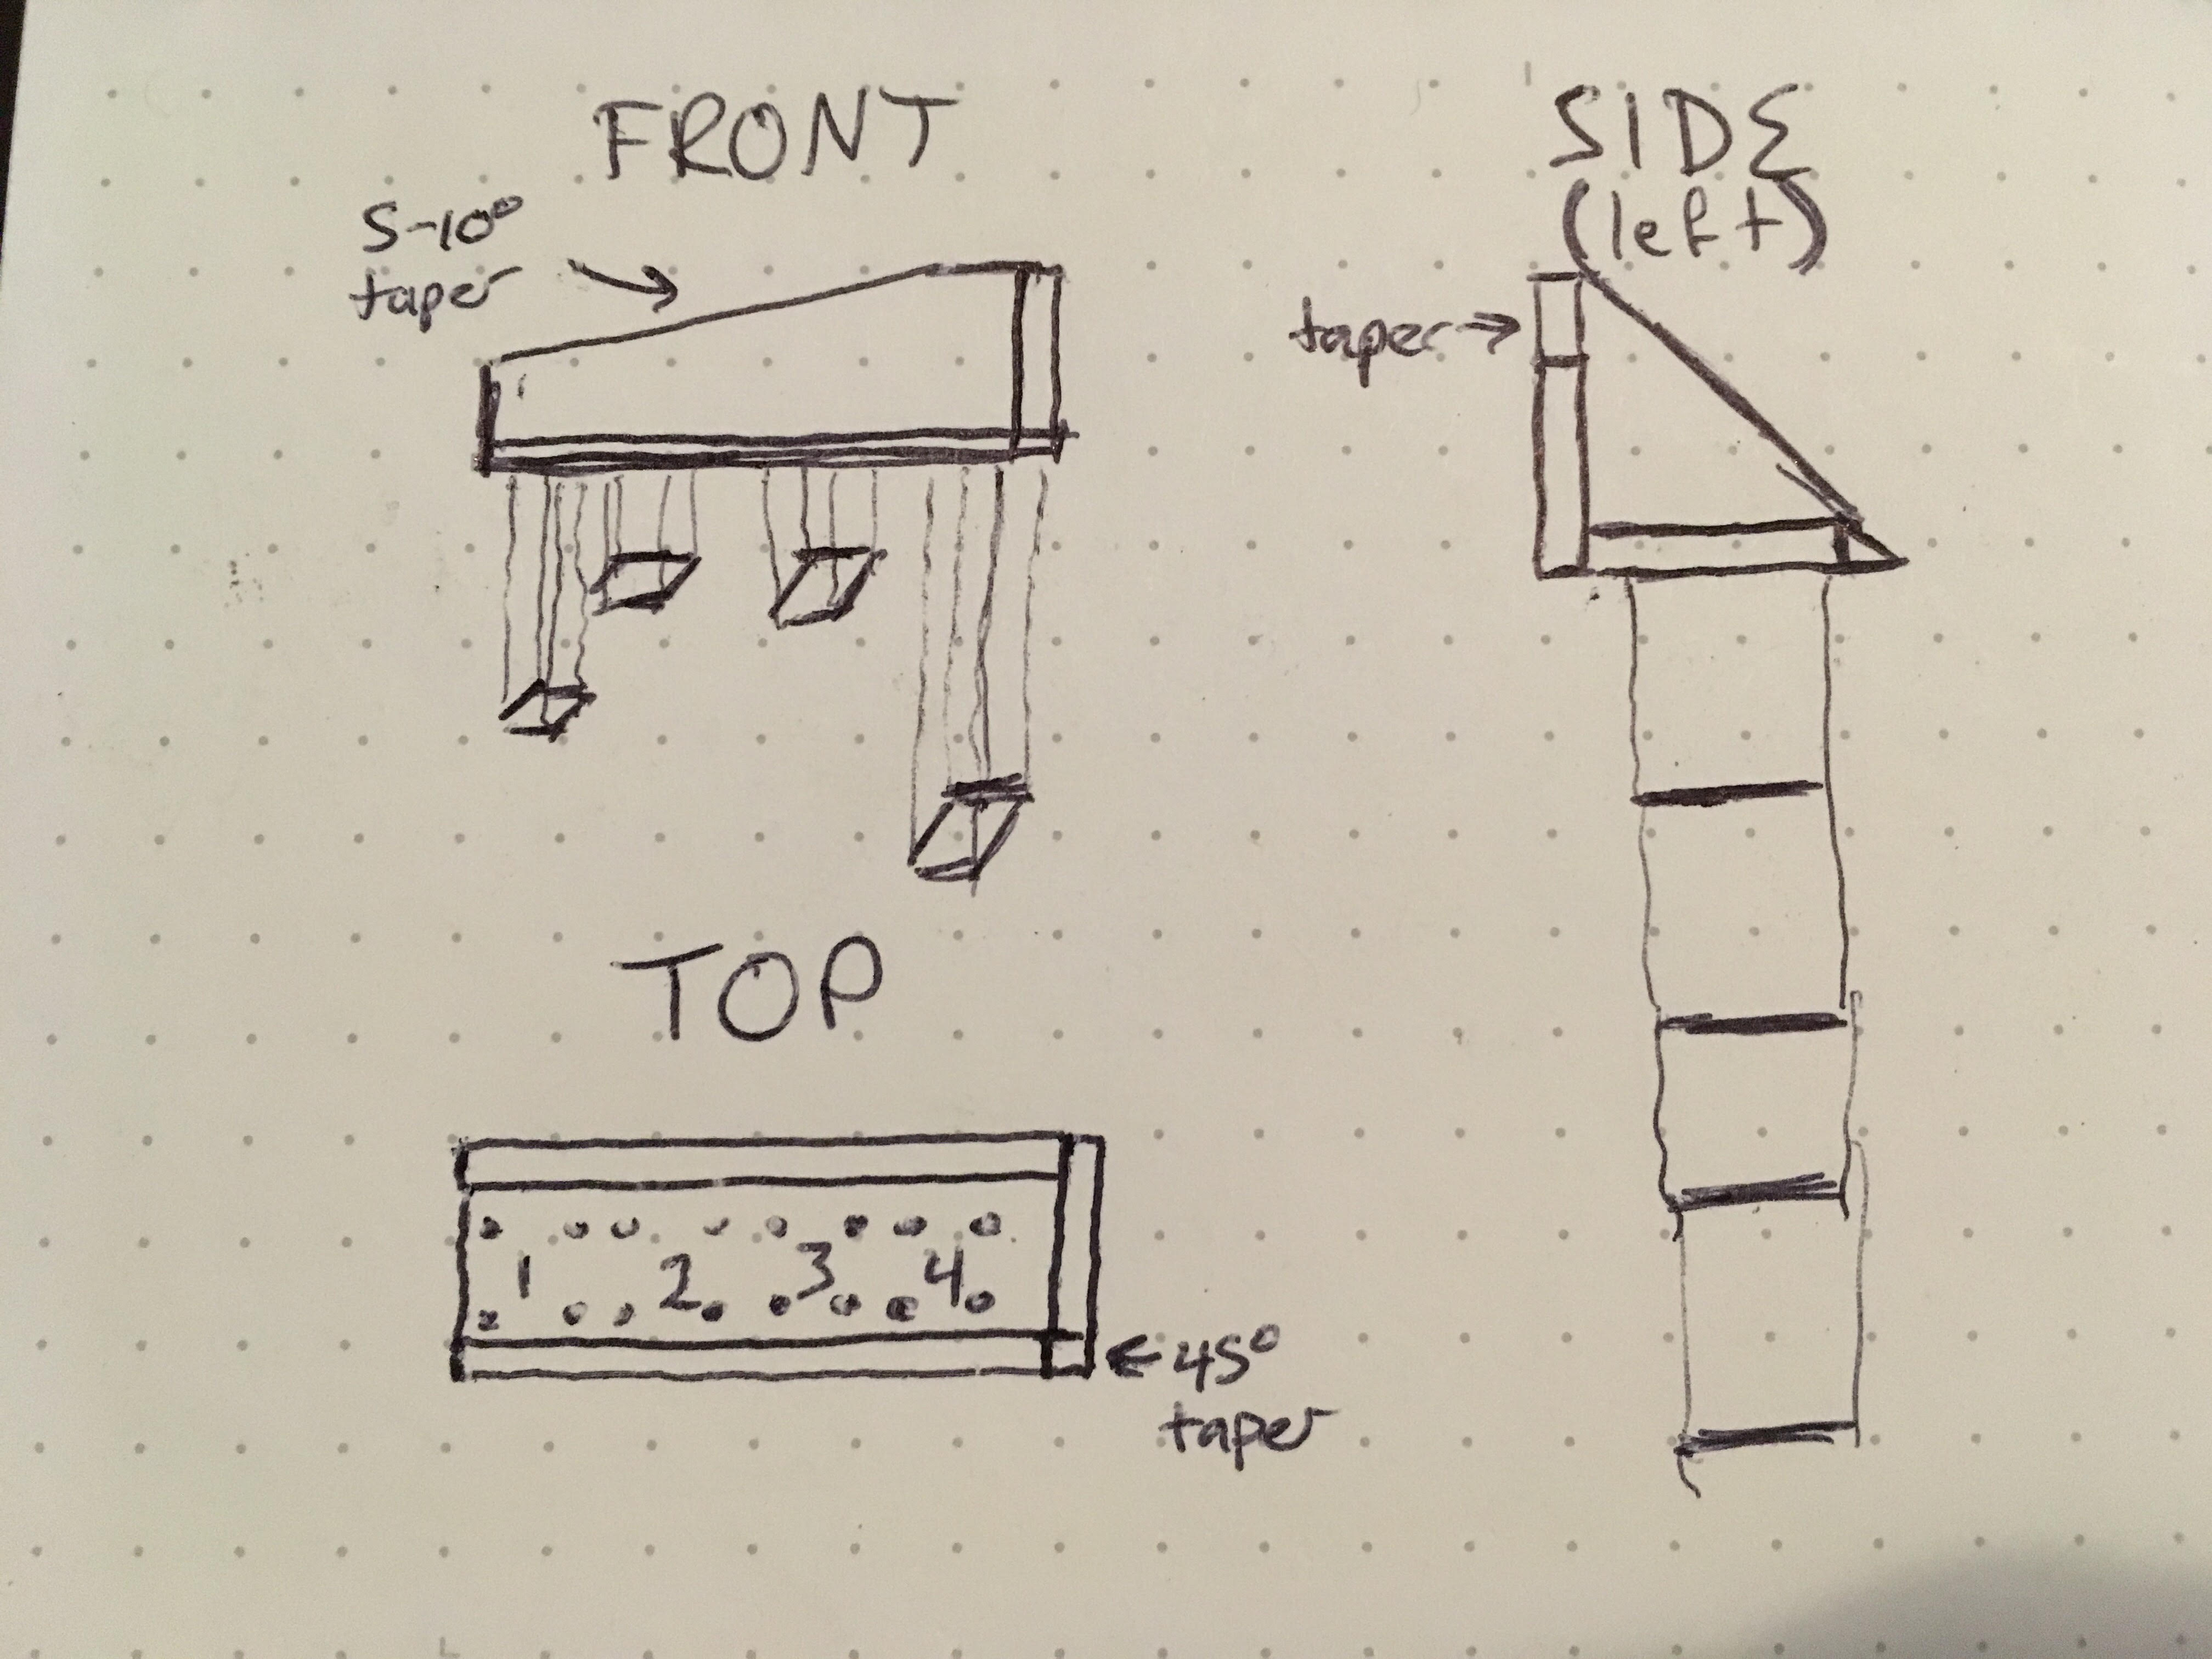 FRONT
5-10°
taper
SIDE
(left)
taper
TOP
1 2 3 4
45°
taper